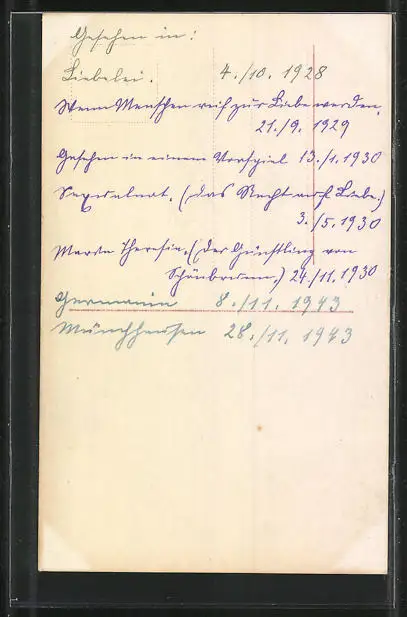 Gesehen in:
Liebelei. 4./10. 1928
Wenn Menschen reif zur Liebe werden.
21./9. 1929
Gesehen in einem Vorspiel 13./1. 1930
Sexualnot. (Das Recht auf Liebe.)
3./5. 1930
Maria Theresia. (Der Günstling von
Schönbrunn.) 24./11. 1930
Germanin 8./11. 1943
Münchhausen 28./11. 1943